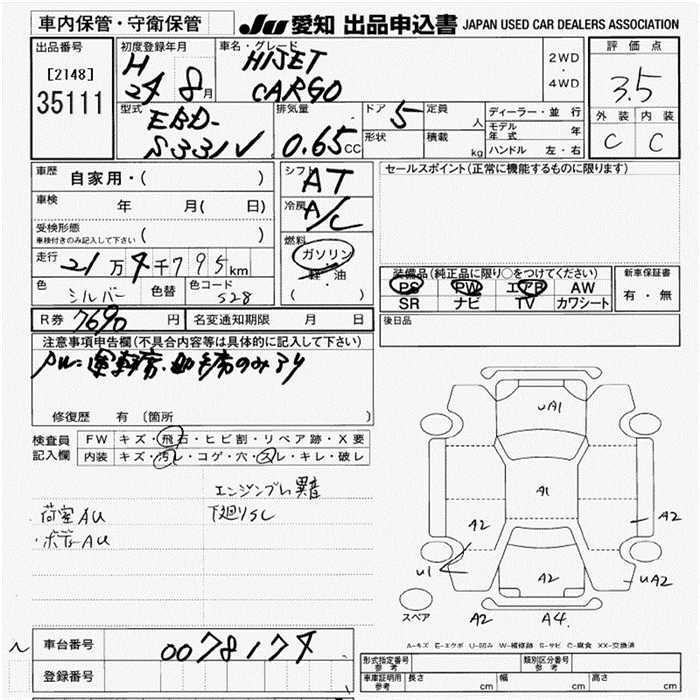 車内保管・守衛保管
JU 愛知 出品申込書 JAPAN USED CAR DEALERS ASSOCIATION
出品番号
[2148]
35111
初度登録年月
H 24 8月
車名・グレード
HIJET
CARGO
2WD
・
4WD
評価点
3.5
外装 内装
C C
型式
EBD-
S331V
排気量
0.65 CC
ドア 5
定員 人
形状
積載 kg
ディーラー・並行
モデル年式 年
ハンドル 左・右
車歴
自家用・( )
車検 年 月( 日)
受検形態
車検付きのみ記入して下さい ( )
走行 21万4千795km
色 シルバー
色替
色コード S28
シフト AT
冷房 A/C
燃料
ガソリン
軽・油
( )
セールスポイント(正常に機能するものに限ります)
装備品(純正品に限り○をつけてください)
PS PW エアB AW
SR ナビ TV カワシート
新車保証書
有・無
R券 7690 円
名変通知期限 月 日
後日品
注意事項申告欄(不具合内容等は具体的に記入して下さい)
PW:運転席・助手席のみアリ
修復歴 有 〔箇所 〕
検査員
記入欄
FW キズ・飛石・ヒビ割・リペア跡・X要
内装 キズ・汚レ・コゲ・穴・スレ・キレ・破レ
エンジンブレ異音
下廻りSC
荷室AU
・ボデーAU
UA1
A1
A2
A2
U1
A2
UA2
A2
A4.
スペア
A-キズ E-エクボ U-凹み W-補修跡 S-サビ C-腐食 XX-交換済
車台番号 0078174
登録番号
形式指定番号
参考
類別区分番号
参考
車庫証明用
参考
長さ cm
幅 cm
高さ cm